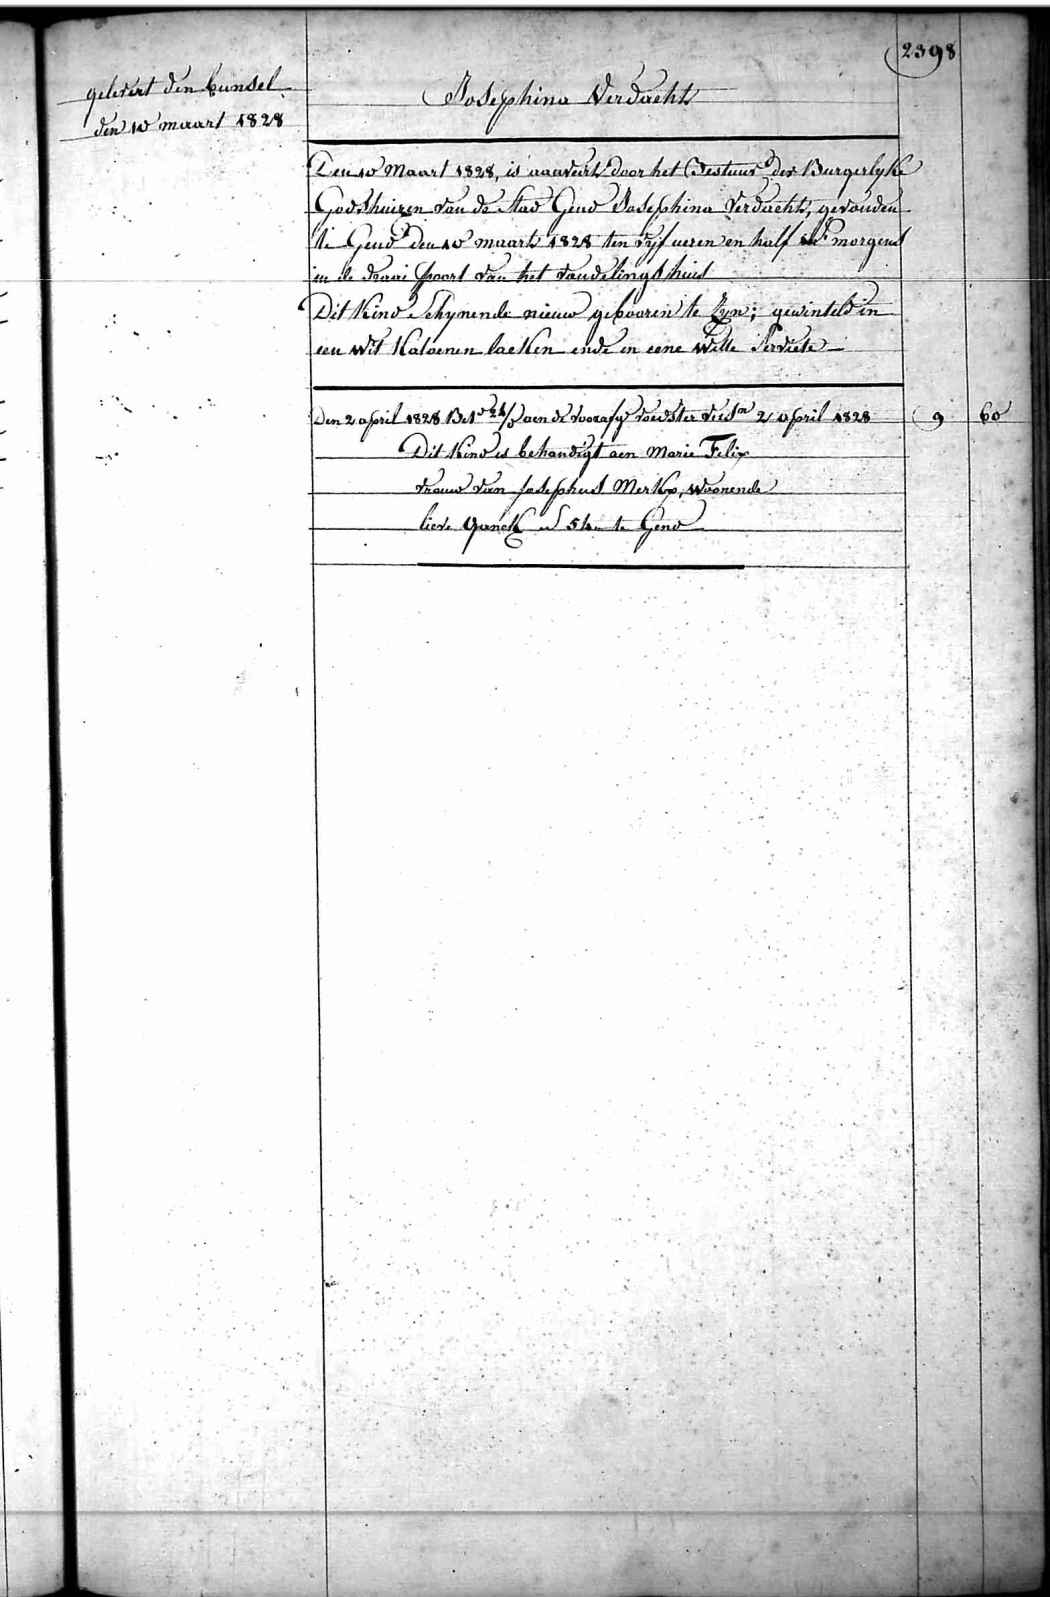 2398
gelevert den bunsel
den 10 maart 1828
Josephina Verdacht
Den 10 Maart 1828, is aanveert door het Bestuur der Burgerlyke
Godshuizen van de Stad Gend Josephina Verdacht, gevonden
te Gend den 10 maart 1828 ten vyf uren en half 's morgens
in de draai Poort van het vondelingshuis
Dit Kind Schynende nieuw gebooren te Zyn; gewinteld in
een wit Katoenen laeken ende in eene Witte Serviete
Den 2 april 1828 Bet aen de voorafg voedster 2 april 1828 9 60
Dit Kind is behandigt aen Marie Felix
vrouw van Josephus Merkx, woonende
te Gend